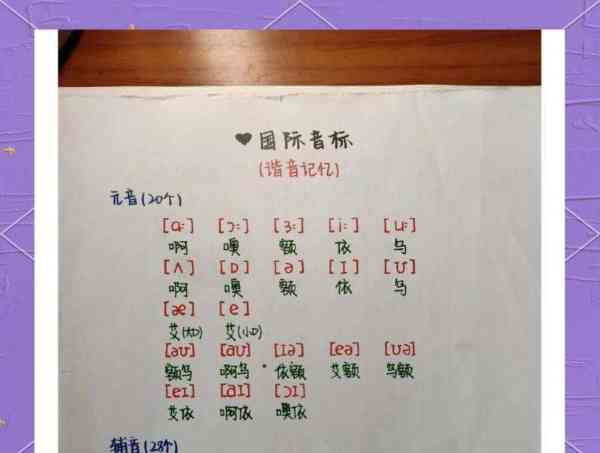 ♥国际音标
(谐音记忆)
元音(20个)
[ɑː] [ɔː] [ɜː] [iː] [uː]
啊 噢 额 依 乌
[ʌ] [ɒ] [ə] [ɪ] [ʊ]
啊 噢 额 依 乌
[æ] [e]
艾(大口) 艾(小口)
[əʊ] [aʊ] [ɪə] [eə] [ʊə]
额乌 啊乌 依额 艾额 乌额
[eɪ] [aɪ] [ɔɪ]
艾依 啊依 噢依
辅音(28个)